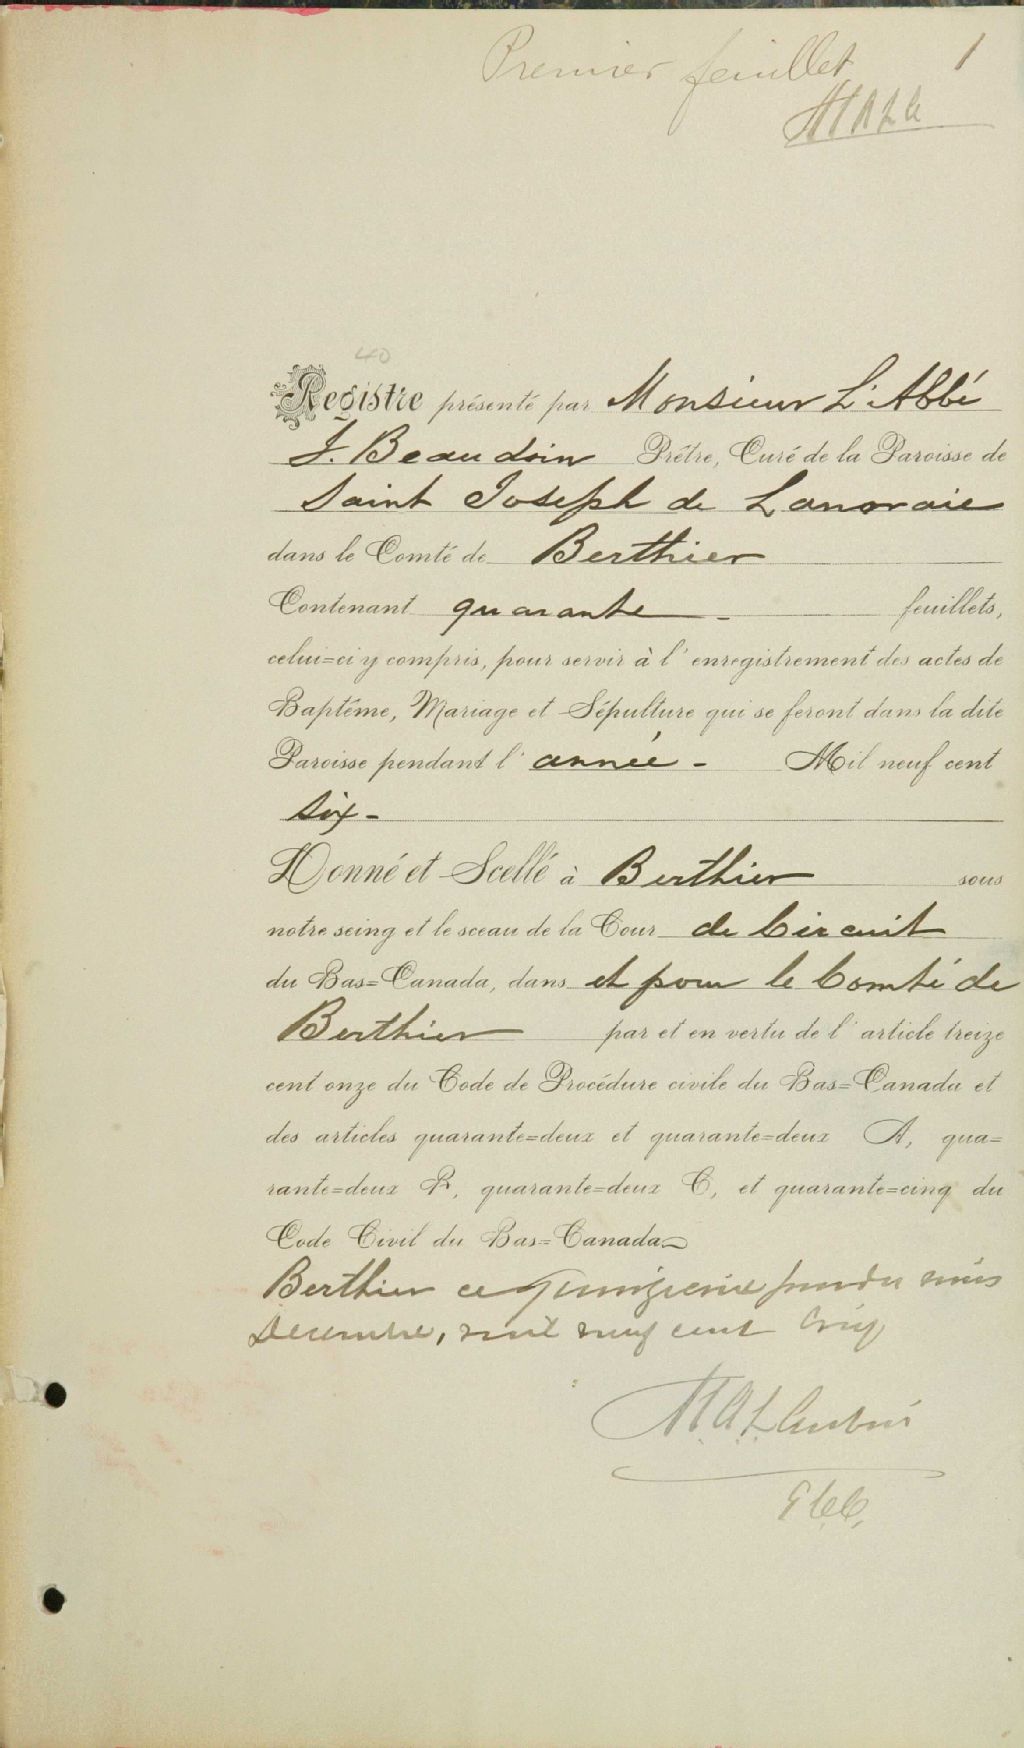 Premier feuillet 1
40
Registre présenté par Monsieur L'Abbé
J. Beaudoin Prêtre, Curé de la Paroisse de
Saint Joseph de Lanoraie
dans le Comté de Berthier
Contenant quarante - feuillets,
celui=ci y compris, pour servir à l'enregistrement des actes de
Baptême, Mariage et Sépulture qui se feront dans la dite
Paroisse pendant l'année - Mil neuf cent
six -
Donné et Scellé à Berthier sous
notre seing et le sceau de la Cour de Circuit
du Bas=Canada, dans et pour le Comté de
Berthier par et en vertu de l'article treize
cent onze du Code de Procédure civile du Bas=Canada et
des articles quarante=deux et quarante=deux A, qua=
rante=deux B, quarante=deux C, et quarante=cinq du
Code Civil du Bas=Canada
Berthier ce quinzieme jour du mois
Decembre, mil neuf cent cinq
G.C.C.